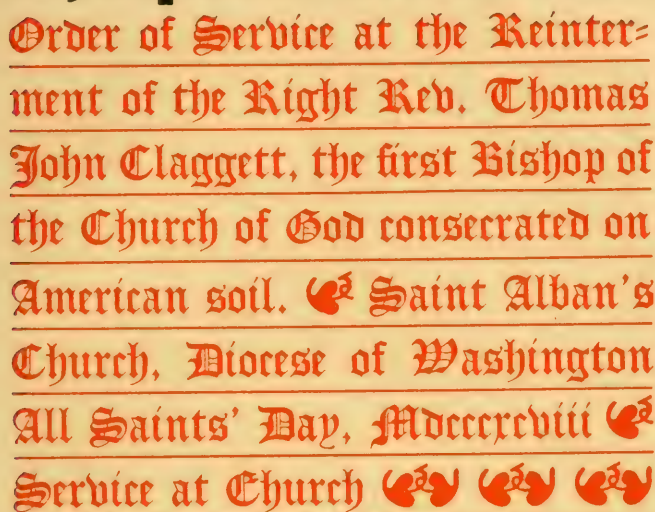 Order of Service at the Reinter=
ment of the Right Rev. Thomas
John Claggett, the first Bishop of
the Church of God consecrated on
American soil. Saint Alban's
Church, Diocese of Washington
All Saints' Day, Mdcccxcviii
Service at Church